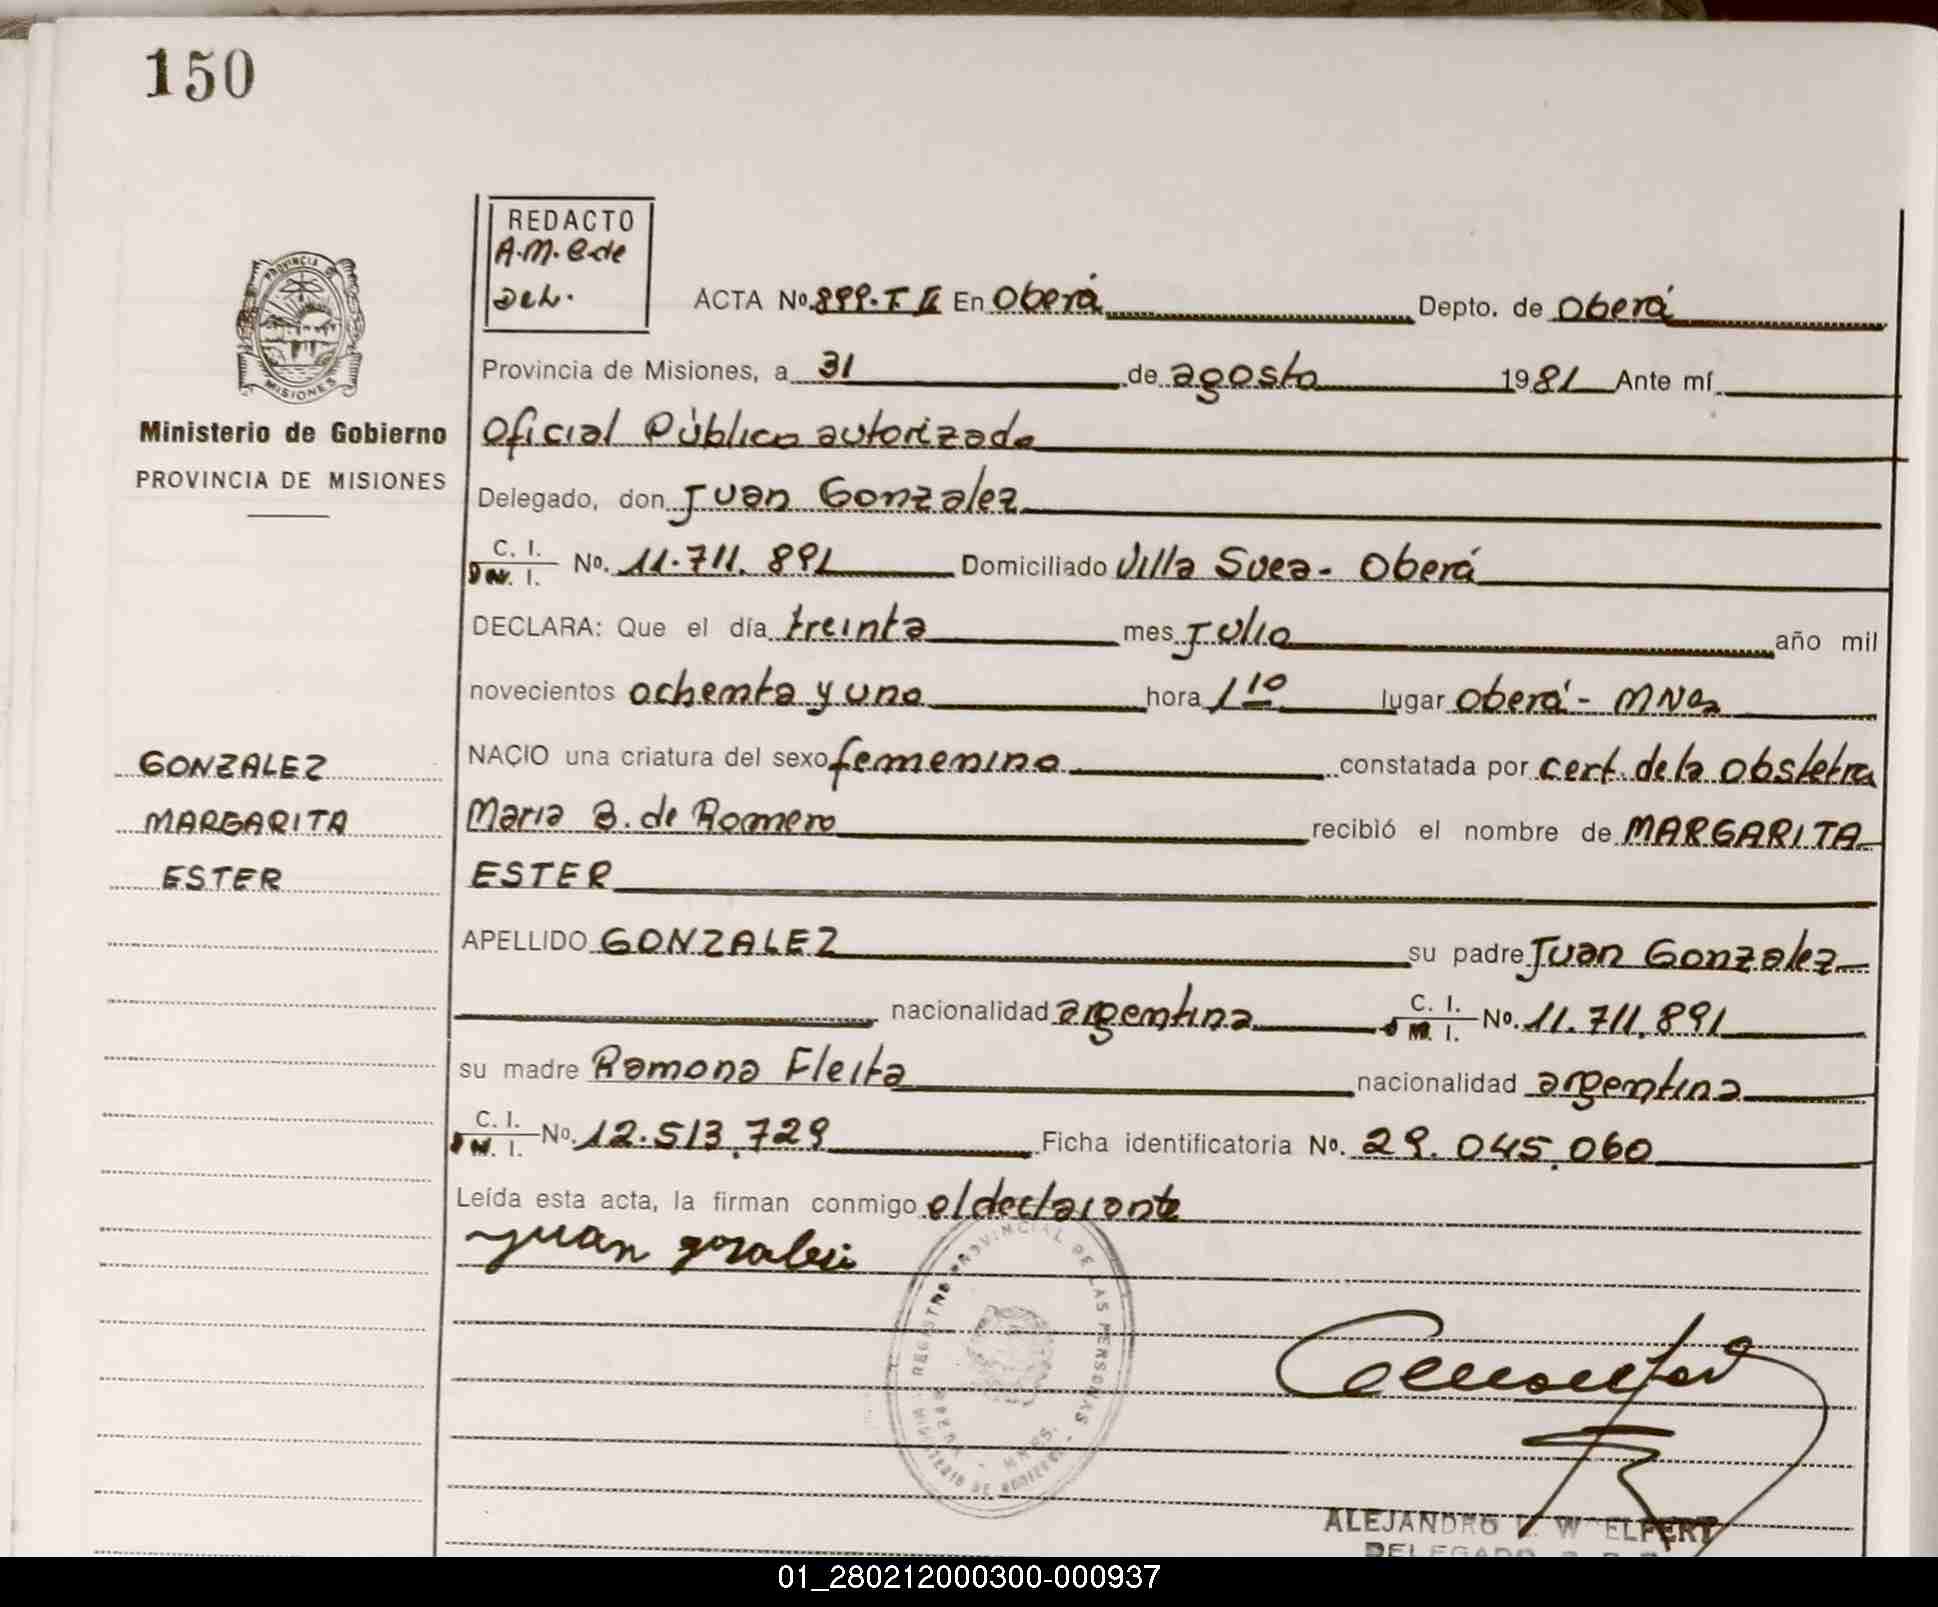 150
REDACTO
A.M.C. de
ACTA No. 899. T II En Oberá Depto. de Oberá
Provincia de Misiones, a 31 de agosto 1981 Ante mí
Ministerio de Gobierno
PROVINCIA DE MISIONES
Oficial Público autorizado
Delegado, don Juan Gonzalez
C. I. No. 11.711.891 Domiciliado Villa Svea - Oberá
DECLARA: Que el día treinta mes Julio año mil
novecientos ochenta y uno hora 1 10 lugar Oberá - MNes
NACIO una criatura del sexo femenino constatada por cert. de la obstetra
GONZALEZ
MARGARITA
ESTER
Maria B. de Romero recibió el nombre de MARGARITA
ESTER
APELLIDO GONZALEZ su padre Juan Gonzalez
nacionalidad argentina C. I. M. I. No. 11.711.891
su madre Ramona Fleita nacionalidad argentina
C. I. No. 12.513.729 Ficha identificatoria No. 29.045.060
Leída esta acta, la firman conmigo el declarante
Juan
REGISTRO PROVINCIAL DE LAS PERSONAS
MINISTERIO DE GOBIERNO
ALEJANDRO W ELFERT
DELEGADO
01_280212000300-000937